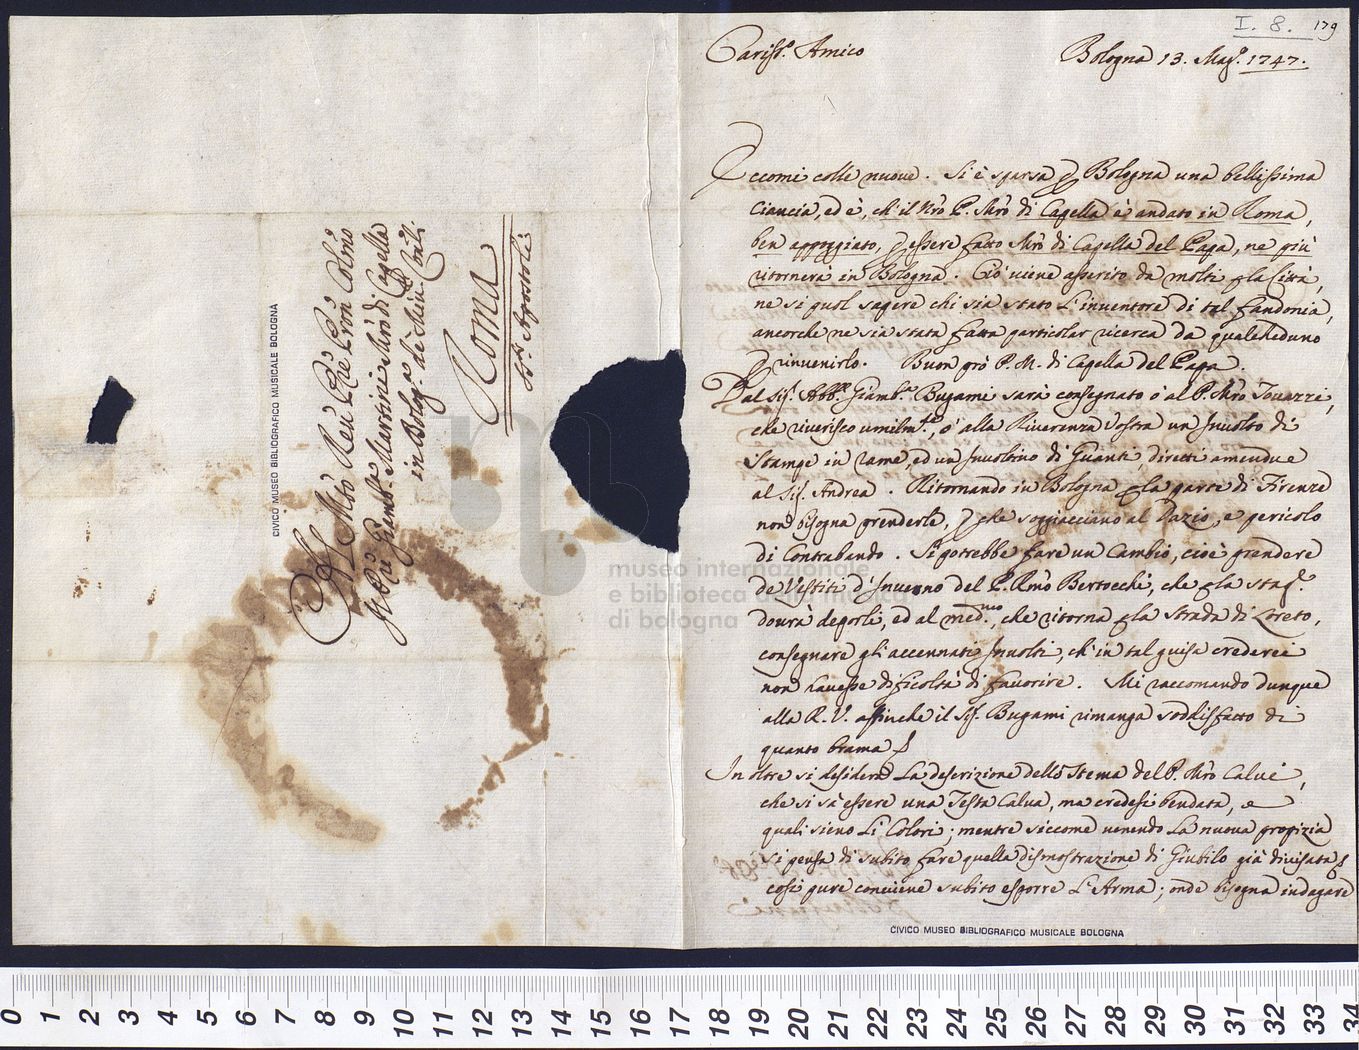 I. 8. 179
Cariss.º Amico Bologna 13. Mag.º 1747.
Eccomi colle nuove. Si è sparsa p Bologna una bellissima
ciancia, ed è, ch'il Nrõ P. Mrõ di Capella è andato in Roma,
ben appoggiato, p essere fatto Mrõ di Capella del Papa, ne più
ritornerà in Bologna. Ciò viene asserito da molti p la Città,
ne si puol sapere chi sia stato l'inventore di tal fandonia,
ancorche ne sia stata fatta particolar ricerca da qualcheduno
p rinvenirlo. Buon prò P. M. di Capella del Papa.
Dal Sig. Abb.e Giamb.a Bugami sarà consegnato ò al P. Mrõ
che riverisco umilm.te, ò alla Riverenza Vostra un Involto di
Stampe in rame, ed un Involtino di Guanti, diretti amendue
al Sig. Andrea. Ritornando in Bologna p la parte di Firenze
non bisogna prenderle, p che soggiacciano al Dazio, e pericolo
di Contrabando. Si potrebbe fare un Cambio, cioè prendere
de Vestiti d'Inverno del P. Rmõ Bertocchi, che p la stag.e
dourà deporli, ed al med.mo, che ritorna p la strada di Loreto,
consegnare gli accennati Involti, ch'in tal guisa crederei
non havesse dificoltà di favorire. Mi raccomando dunque
alla R. V. affinche il Sig. Bugami rimanga soddisfatto di
quanto brama
In oltre si desidera la descrizione dello Stema del P. Mrõ Calvi,
che si sà essere una Testa Calva, ma credesi bendata, e
quali sieno li Colori; mentre siccome venendo la nuova propizia
si pensa di subito fare quella dismostrazione di Giubilo già divisata
così pure conviene subito esporre l'Arma; onde bisogna indagare
CIVICO MUSEO BIBLIOGRAFICO MUSICALE BOLOGNA
Al Mtõ Reu Prẽ Prõn Colmõ
Giamb.a Martini Mrõ di Capella
in Bolog.a
Roma
Apostoli
CIVICO MUSEO BIBLIOGRAFICO MUSICALE BOLOGNA
museo internazionale
e biblioteca della musica
di bologna
0 1 2 3 4 5 6 7 8 9 10 11 12 13 14 15 16 17 18 19 20 21 22 23 24 25 26 27 28 29 30 31 32 33 34